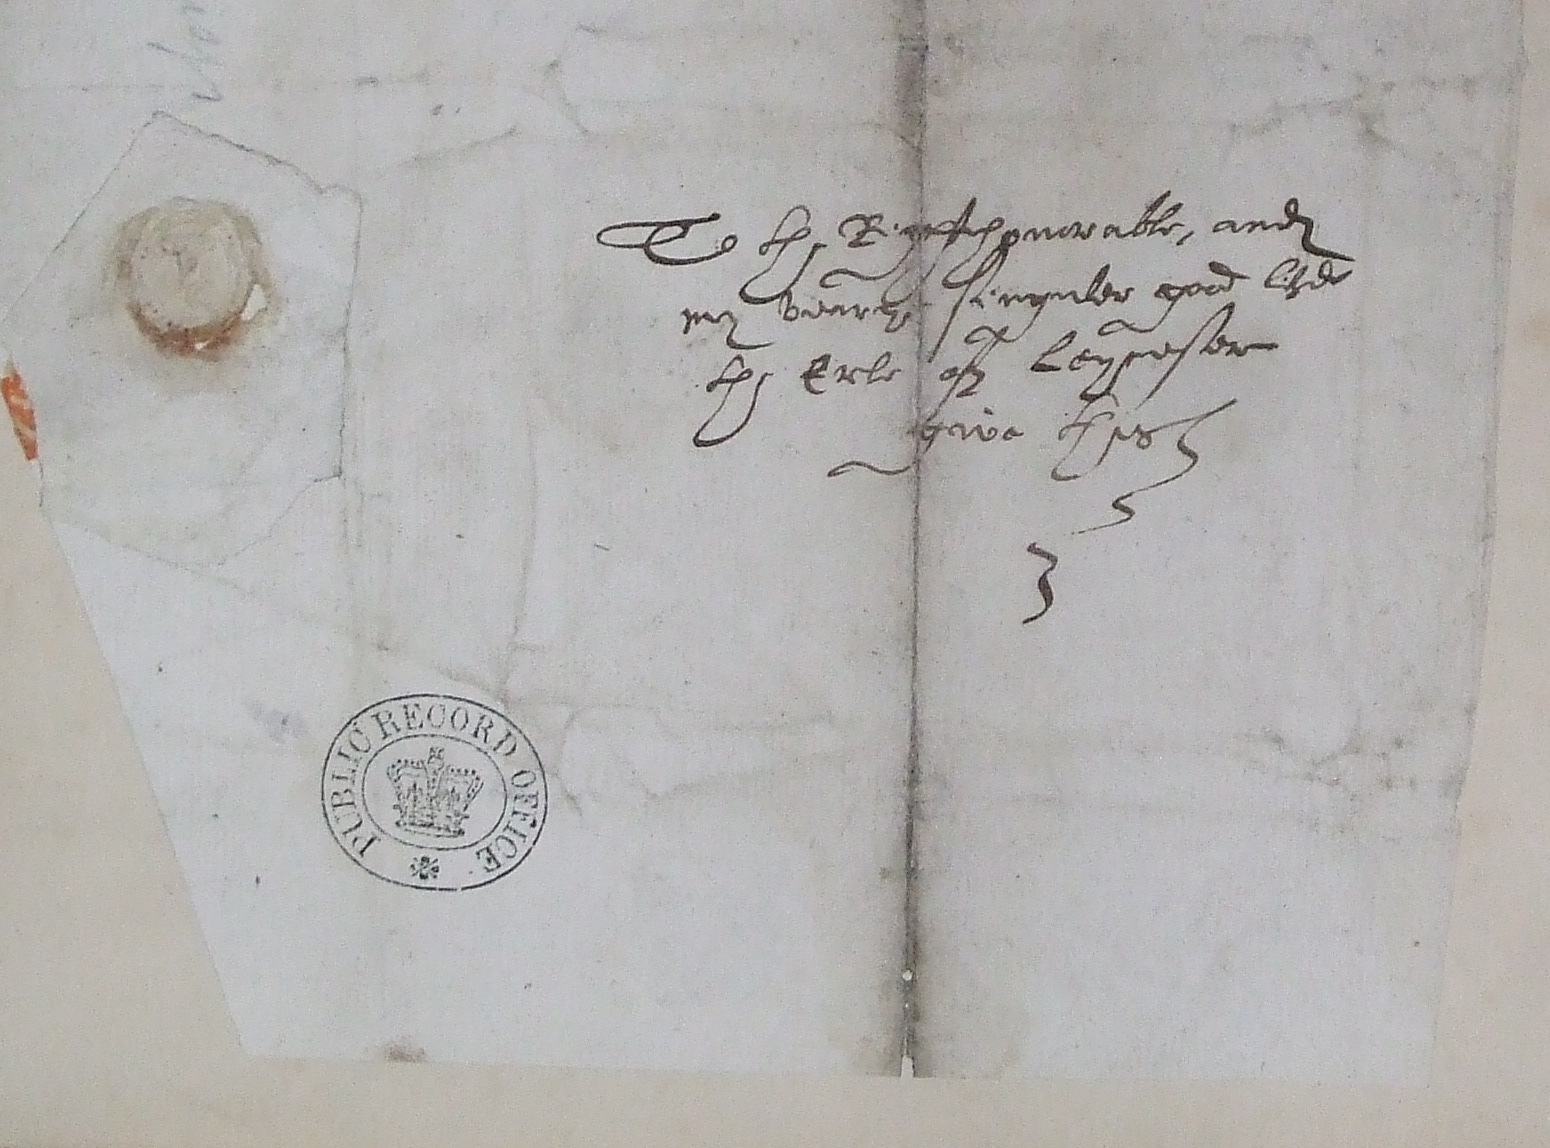 To the Right honorable, and
my vearye singuler good lorde
the Erle off Leycester
give thes
PUBLIC RECORD OFFICE